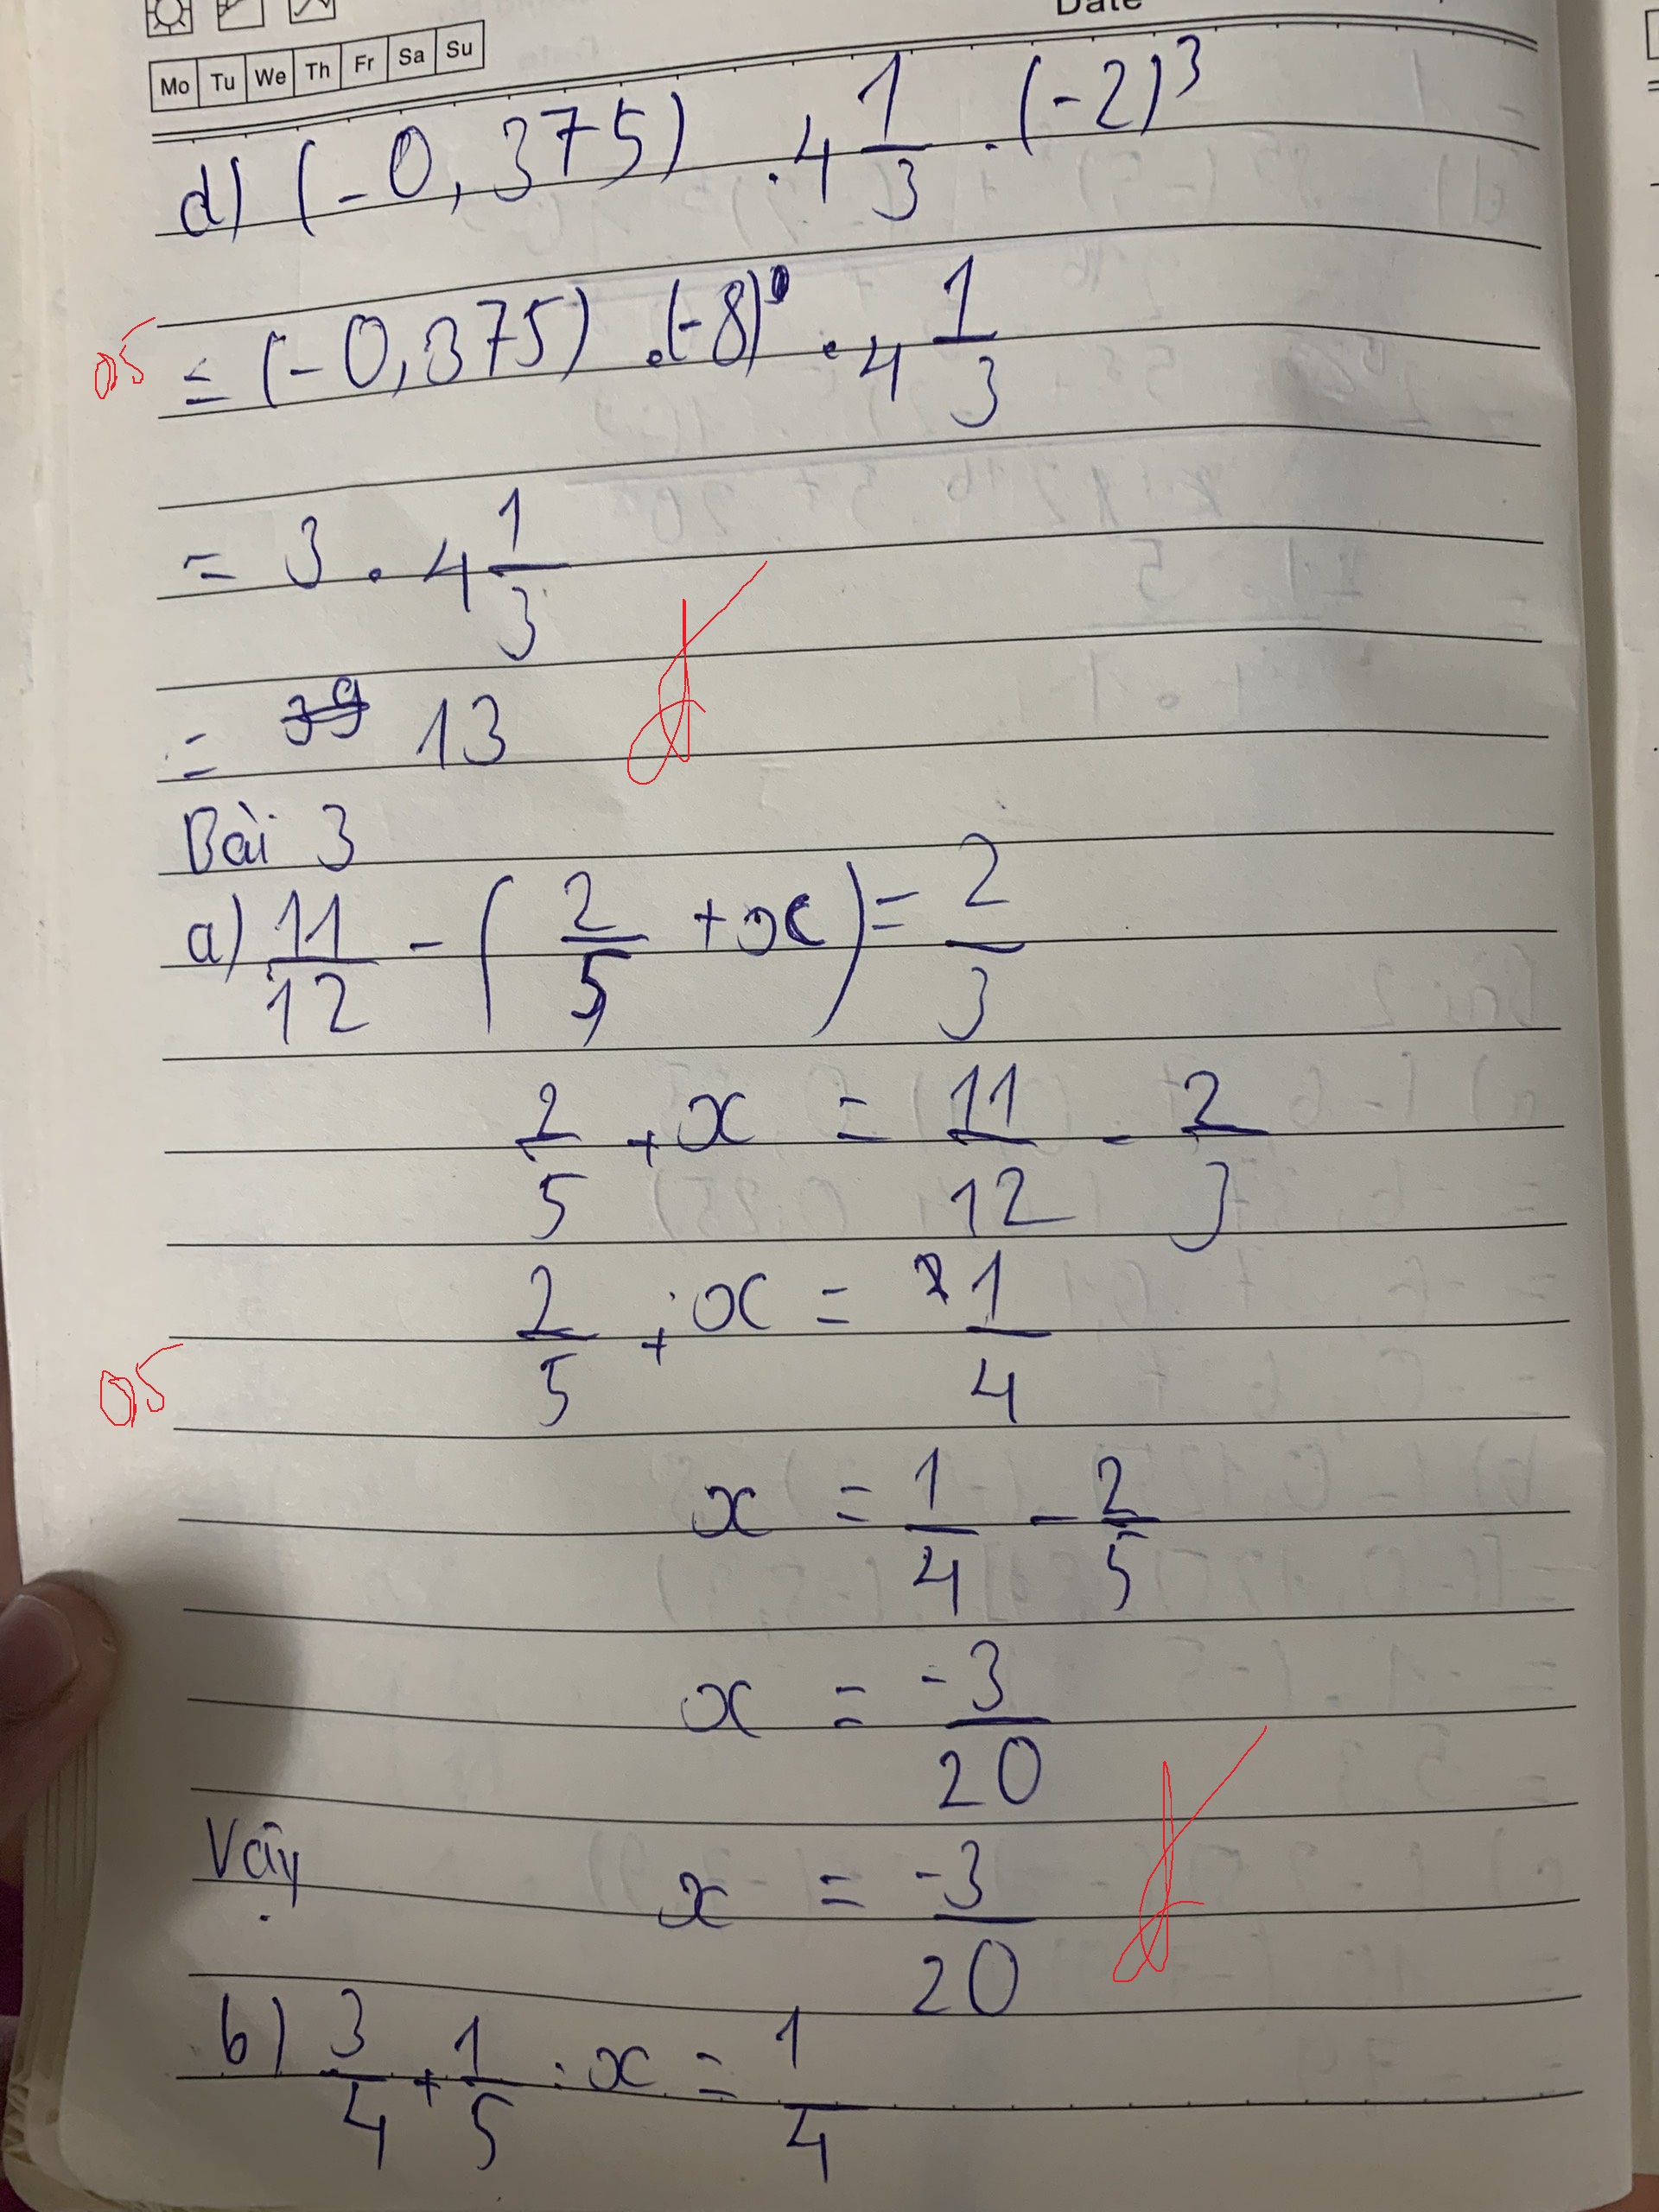 Date
Mo Tu We Th Fr Sa Su
d) (-0,375) . 4 1/3 . (-2)³
05
= (-0,375) . (-8) . 4 1/3
= 3 . 4 1/3
= 39 13
đ
Bài 3
a) 11/12 - (2/5 + x) = 2/3
2/5 + x = 11/12 - 2/3
2/5 + x = 1/4
05
x = 1/4 - 2/5
x = -3/20
Vậy x = -3/20
đ
b) 3/4 + 1/5 : x = 1/4